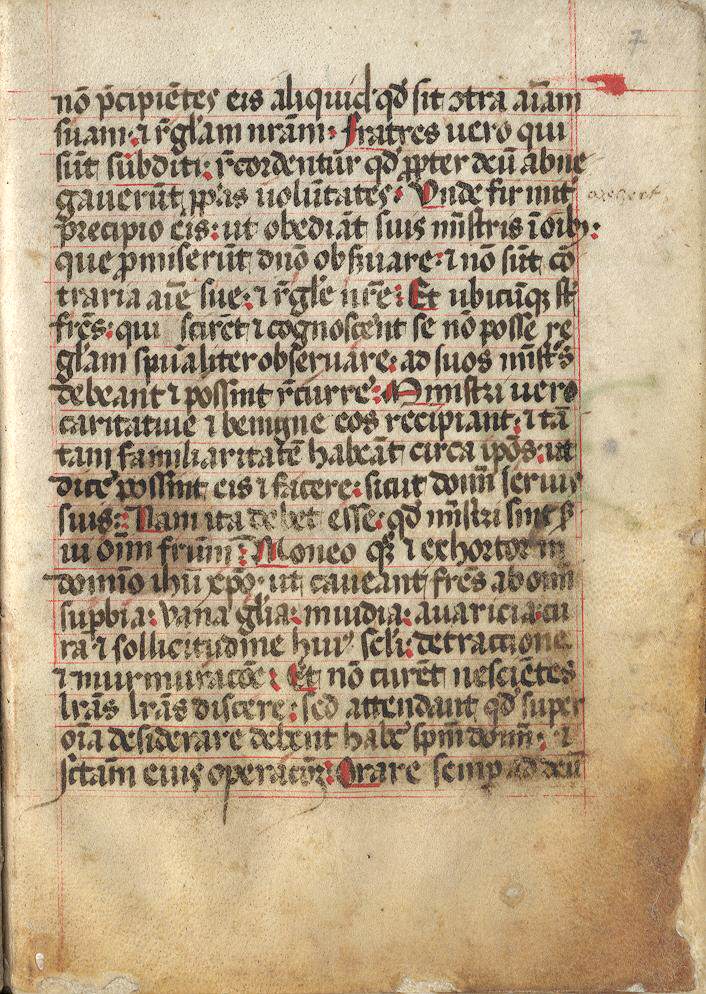 7
nō p̄cipiētes eis aliquid qd̄ sit ꝯtra aīam
suam: ⁊ r̄gl'am nr̄am: Fratres uero qui
sūt subditi: r̄cordentur qd̄ ꝓpter deū abne
gauerūt ꝓp̄as uolūtates: Vnde firmit̓
precipio eis: ut obediāt suis mīstris ī oīb;:
que ꝓmiserūt dn̄o obs̄uare: ⁊ nō sūt cō
traria aīe sue: ⁊ r̄gl'e nr̄e: Et ubicūqꝫ st̄
fr̄es: qui scirēt ⁊ cognoscēnt se nō posse re
glam spūaliter obseruare: ad suos mīst̄s
debeant ⁊ possint r̄currē: Ministri uero
caritatiue ⁊ benigne eos recipiant: ⁊ tā
tam familiaritatē habeāt circa ip̄os: ut
dicē possint eis ⁊ facere: sicut domī seruis
suis: Nam ita debet esse: qd̄ mīstri sint s̄
ui oīm fr̄um: Moneo qꝫ ⁊ exhortor in
domīo ihū xp̄o: ut caueant fr̄es ab omī
suꝑbia: vana gl̄ia: inuidia: auaricia: cu
ra ⁊ sollicitudine huiꝰ sc̄li: detractione
⁊ murmuracōe: Et nō curēt nescīētes
lr̄as lr̄as discere: sed attendant qd̄ super
oīa desiderare debent habē sp̄m domī: ⁊
sc̄tam eius operatōꝫ: Orare semꝑ ad deū